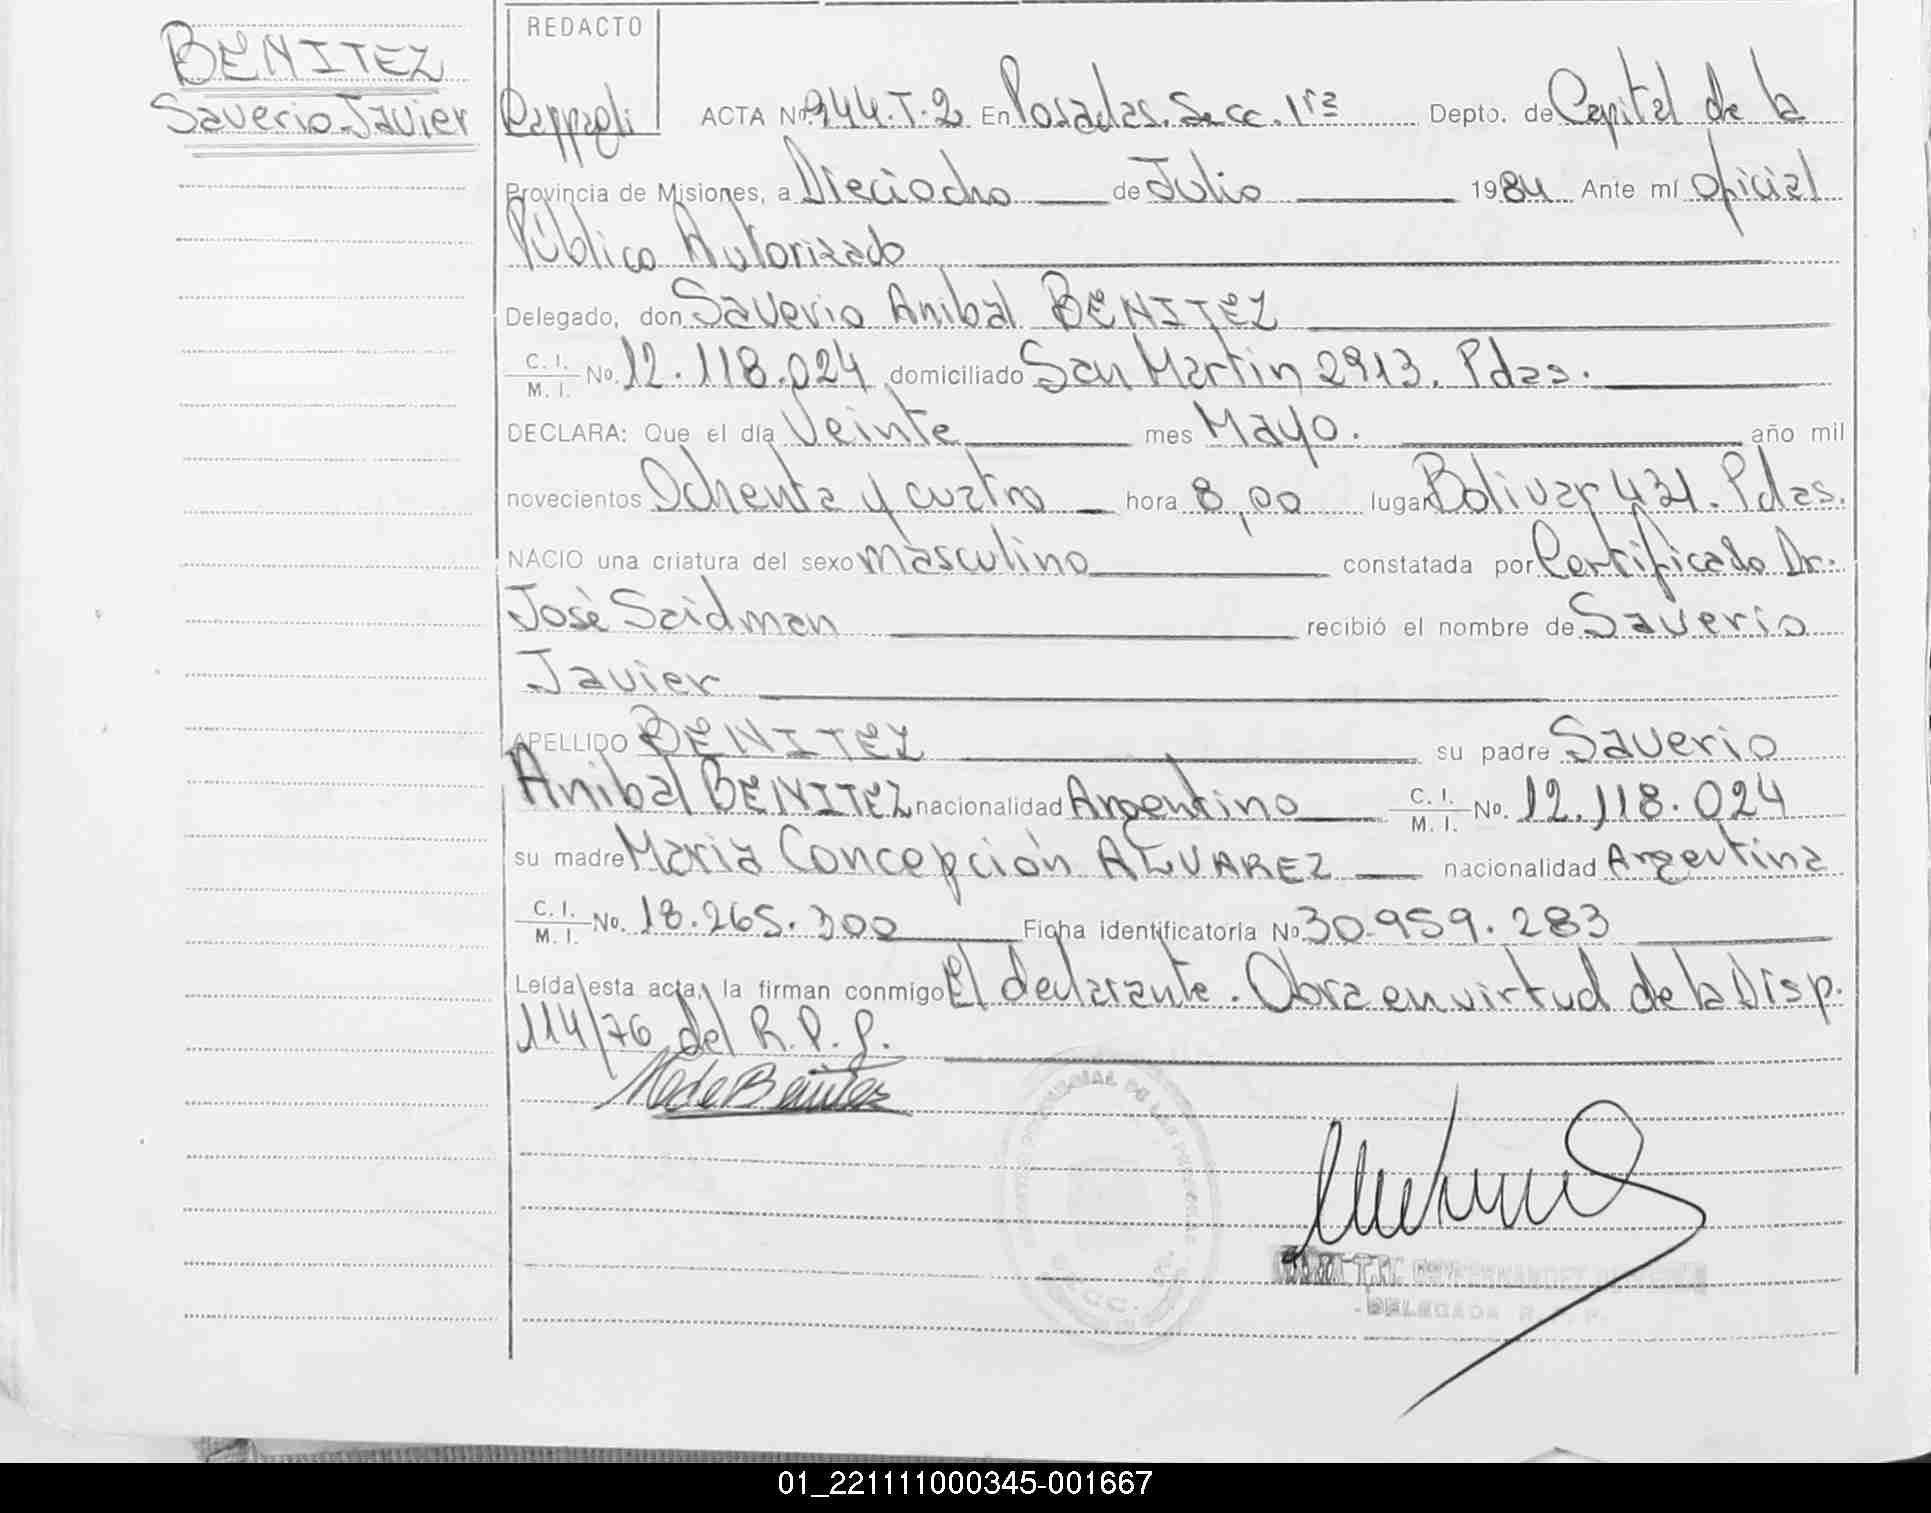 BENITEZ
Saverio Javier
REDACTO
ACTA Nº 944.T.2 En Posadas. Secc. 1ra Depto. de Capital de la
Provincia de Misiones, a Dieciocho de Julio 1984 Ante mí Oficial
Público Autorizado
Delegado, don Saverio Anibal BENITEZ
C. I. / M. I. No. 12.118.024 domiciliado San Martin 2913. Pdas.
DECLARA: Que el día Veinte mes Mayo. año mil
novecientos Ochenta y cuatro hora 8,00 lugar Bolivar 431. Pdas.
NACIO una criatura del sexo masculino constatada por Certificado Dr.
José Saidman recibió el nombre de Saverio
Javier
APELLIDO BENITEZ su padre Saverio
Anibal BENITEZ nacionalidad Argentino C. I. / M. I. No. 12.118.024
su madre Maria Concepción ALVAREZ nacionalidad Argentina
C. I. / M. I. No. 18.265.300 Ficha identificatoria Nº 30.959.283
Leída esta acta, la firman conmigo El declarante. Obra en virtud de la Disp.
114/76 del R.P.P.
DELEGADA R. P. P.
01_221111000345-001667